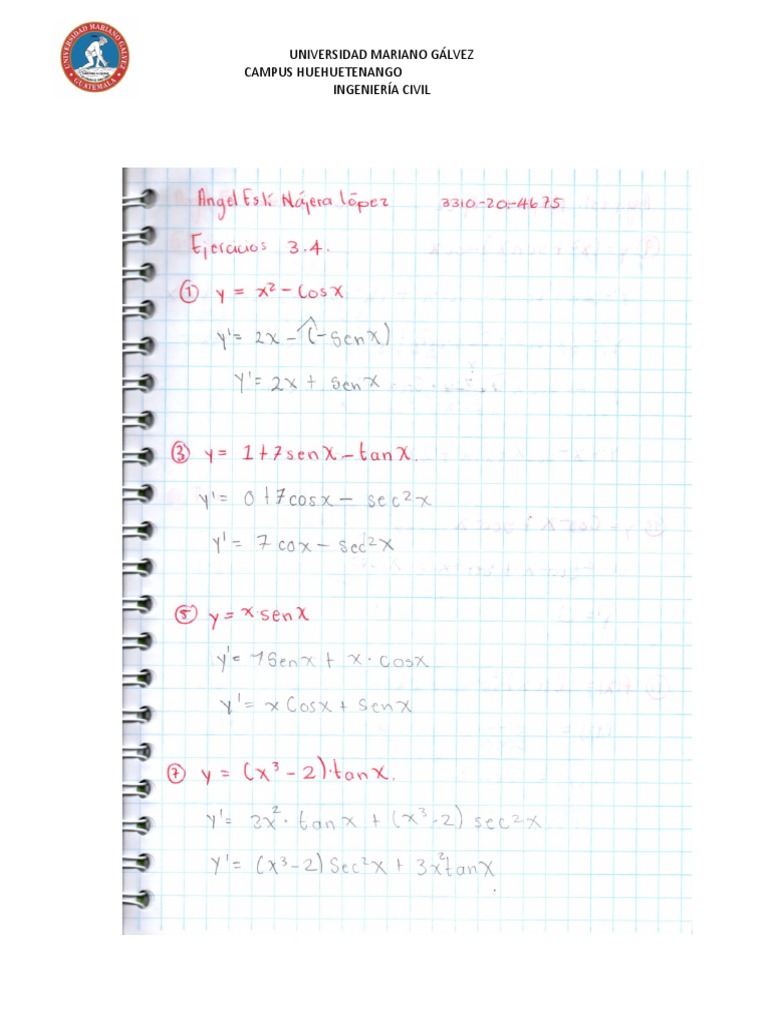 UNIVERSIDAD MARIANO GÁLVEZ
GUATEMALA
UNIVERSIDAD MARIANO GÁLVEZ
CAMPUS HUEHUETENANGO
INGENIERÍA CIVIL
Angel Eslí Nájera López 3310-20-4675
Ejercicios 3.4.
① y = x² - Cosx
y' = 2x - (-Senx)
y' = 2x + Senx
③ y = 1+7senx - tanx.
y' = 0+7cosx - sec²x
y' = 7cox - sec²x
⑤ y = x·senx
y' = 1Senx + x·Cosx
y' = xCosx + Senx
⑦ y = (x³ - 2)·tanx.
y' = 2x²·tanx + (x³-2) sec²x
y' = (x³-2) Sec²x + 3x²tanx